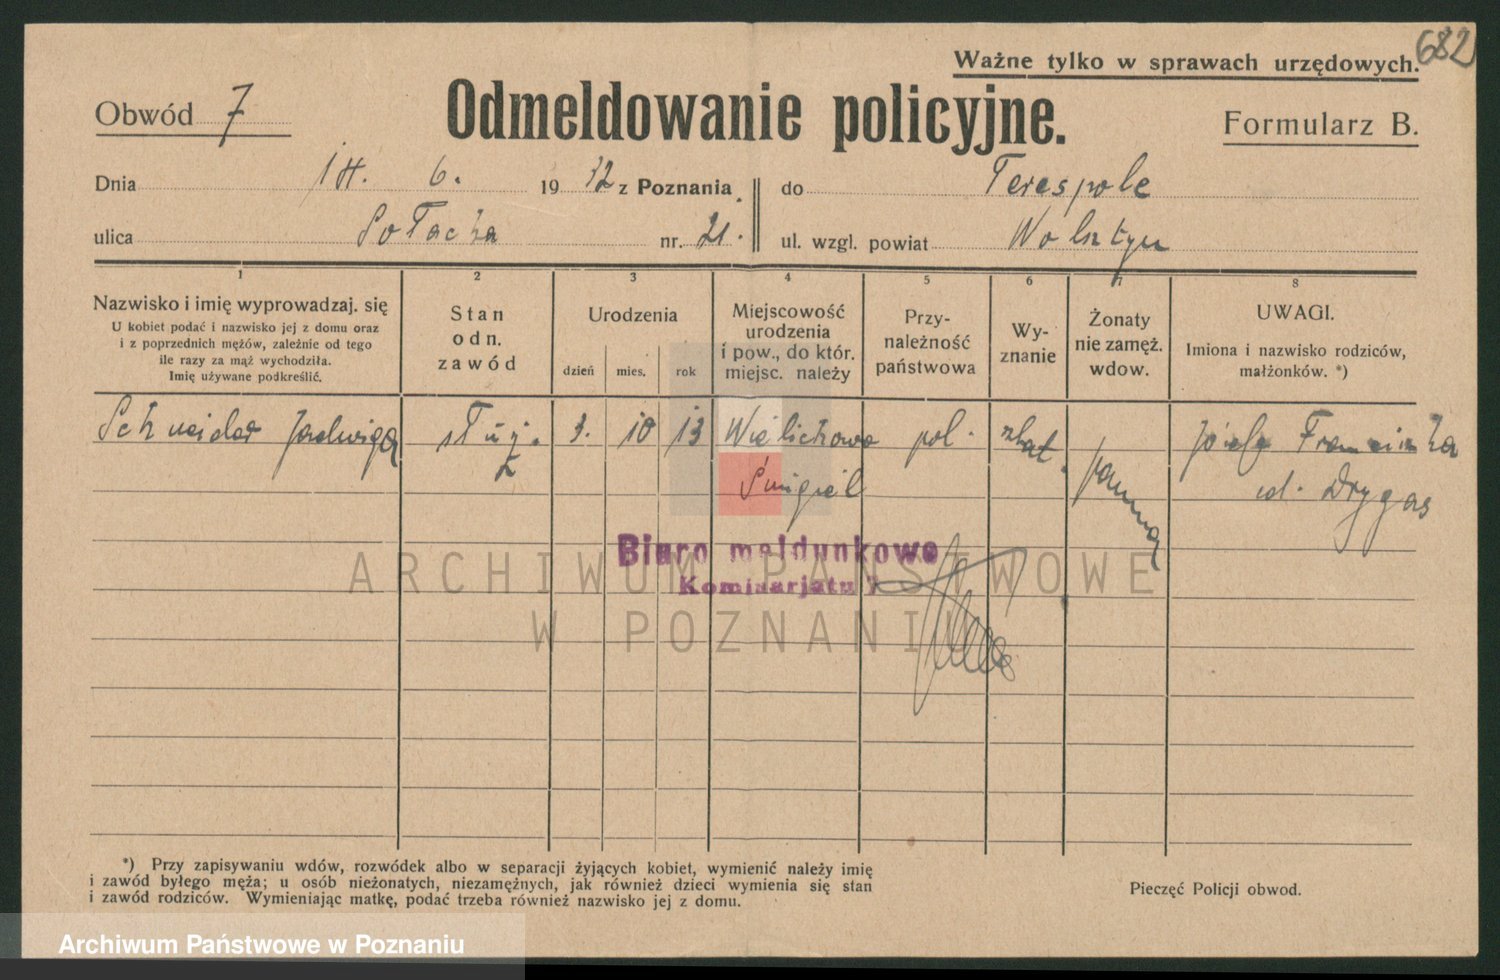 682
Ważne tylko w sprawach urzędowych.
Obwód 7
Odmeldowanie policyjne.
Formularz B.
Dnia 14. 6. 1932 z Poznania do Terespole
ulica Sołacka nr. 21. ul. wzgl. powiat Wolsztyn
1 2 3 4 5 6 7 8
Nazwisko i imię wyprowadzaj. się
U kobiet podać i nazwisko jej z domu oraz
i z poprzednich mężów, zależnie od tego
ile razy za mąż wychodziła.
Imię używane podkreślić.
Stan
odn.
zawód
Urodzenia
dzień mies. rok
Miejscowość
urodzenia
i pow., do któr.
miejsc. należy
Przy-
należność
państwowa
Wy-
znanie
Żonaty
nie zamęż.
wdow.
UWAGI.
Imiona i nazwisko rodziców,
małżonków. *)
Schneider Jadwiga służ. 3. 10 13 Wielichowo pol. kat. panna Józef Franciszka
Śmigiel
ud. Drygas
Biuro meldunkowe
Komisarjatu 7
ARCHIWUM PAŃSTWOWE
W POZNANIU
*) Przy zapisywaniu wdów, rozwódek albo w separacji żyjących kobiet, wymienić należy imię
i zawód byłego męża; u osób nieżonatych, niezamężnych, jak również dzieci wymienia się stan
i zawód rodziców. Wymieniając matkę, podać trzeba również nazwisko jej z domu.
Pieczęć Policji obwod.
Archiwum Państwowe w Poznaniu